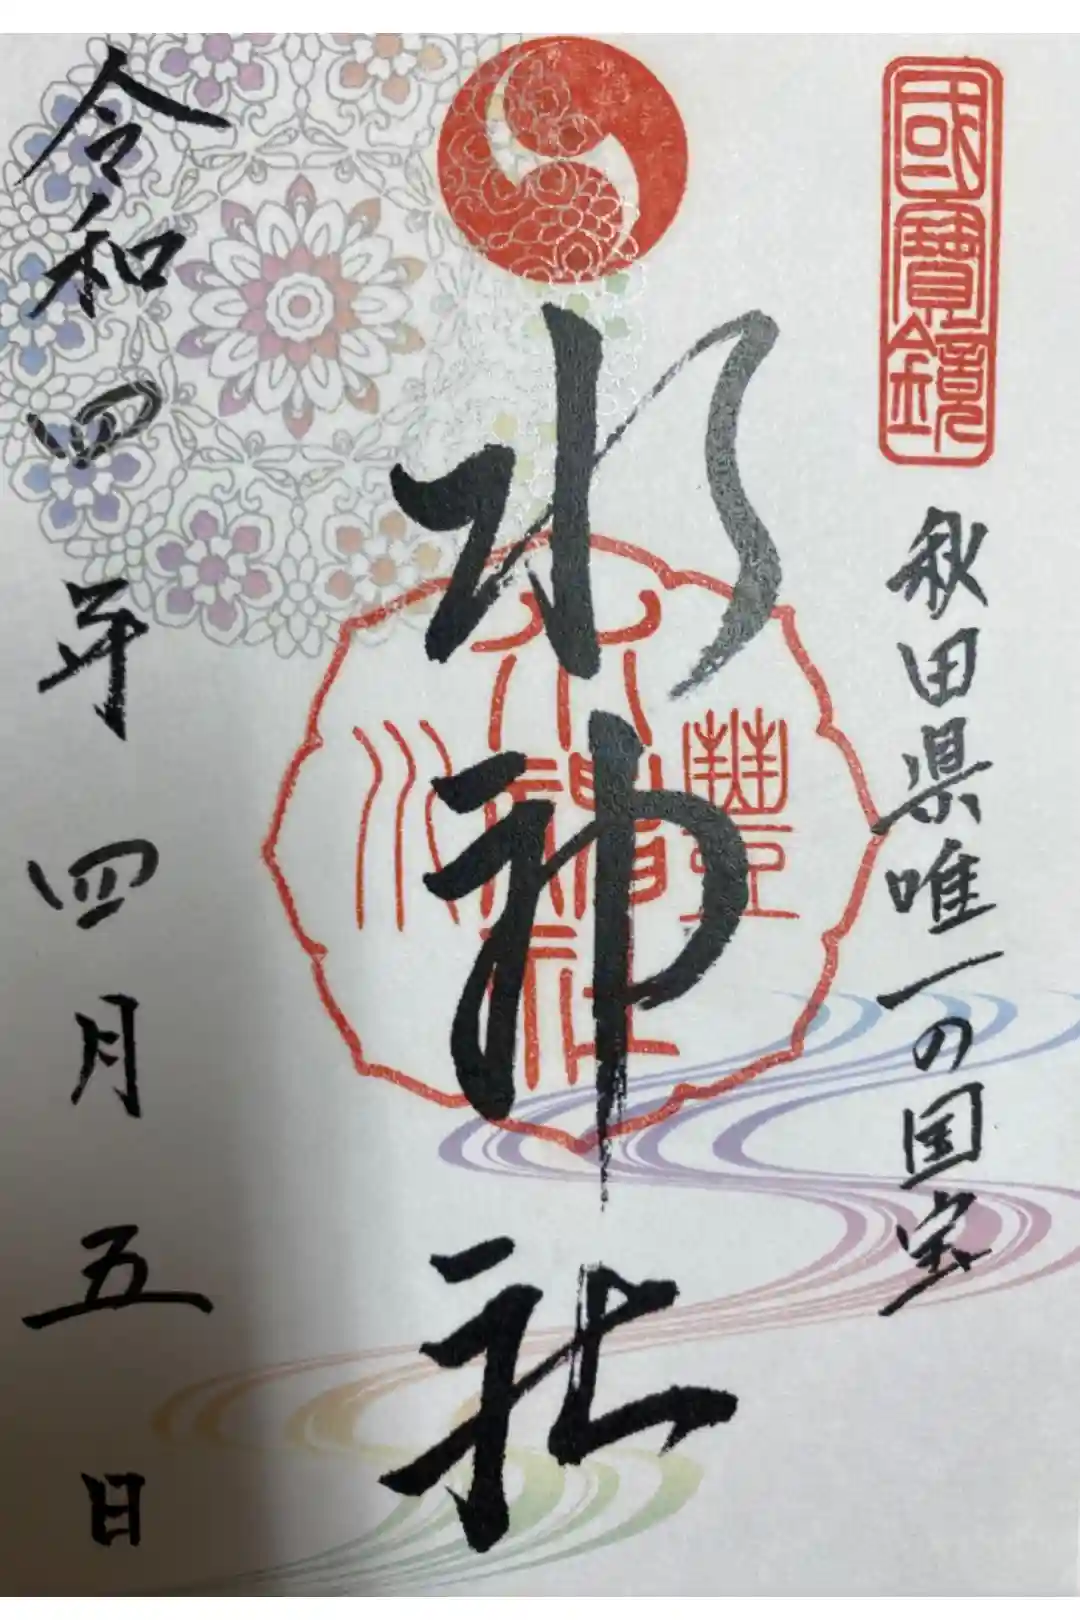 國寶鏡
秋田県唯一の国宝
水神社
豊川
水神社
令和四年四月五日